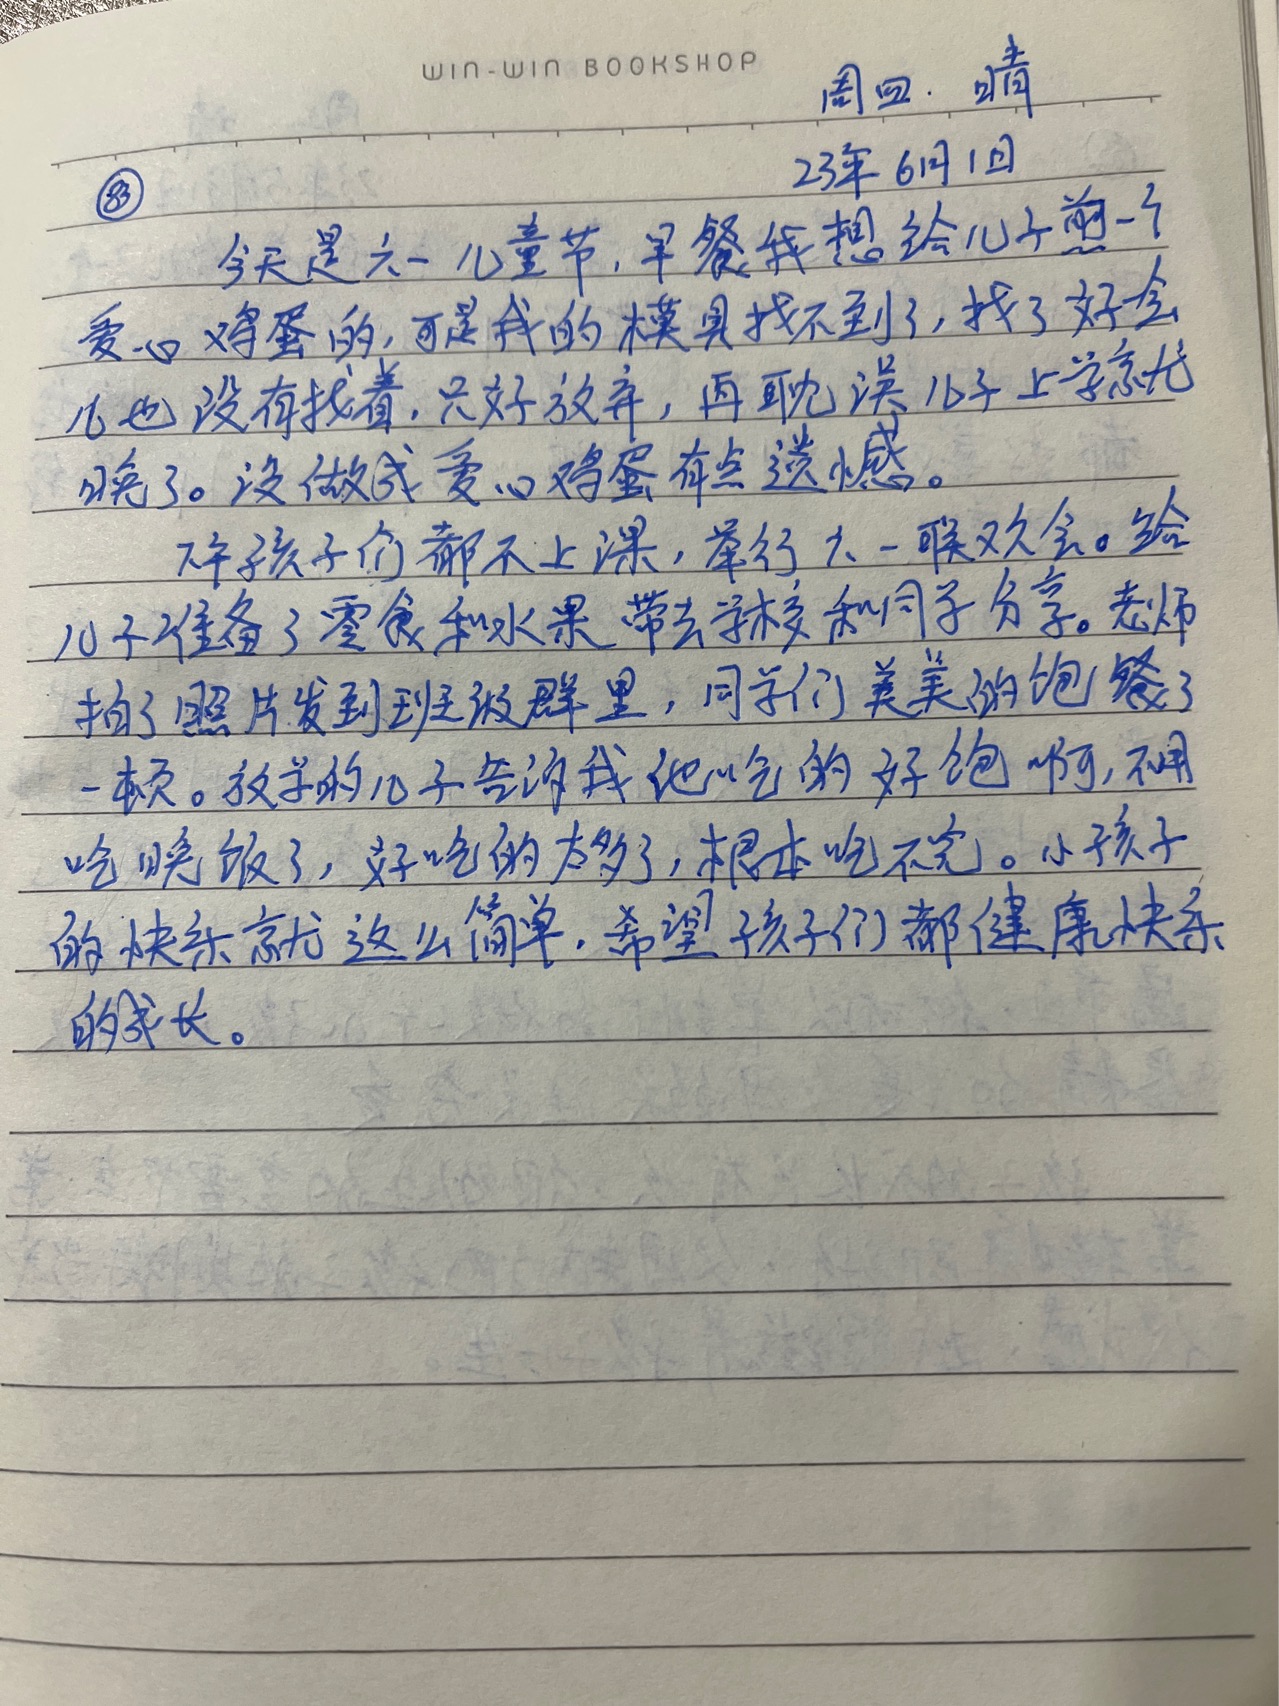 WIN-WIN BOOKSHOP
周四. 晴
23年6月1日
83
今天是六一儿童节,早餐我想给儿子煎一个
爱心鸡蛋的,可是我的模具找不到了,找了好会
儿也没有找着,只好放弃,再耽误儿子上学就
晚了。没做成爱心鸡蛋有点遗憾。
下午孩子们都不上课,举行六一联欢会。给
儿子准备了零食和水果带去学校和同学分享。老师
拍了照片发到班级群里,同学们美美的饱餐了
一顿。放学的儿子告诉我他吃的好饱啊,不用
吃晚饭了,好吃的太多了,根本吃不完。小孩子
的快乐就这么简单,希望孩子们都健康快乐
的成长。